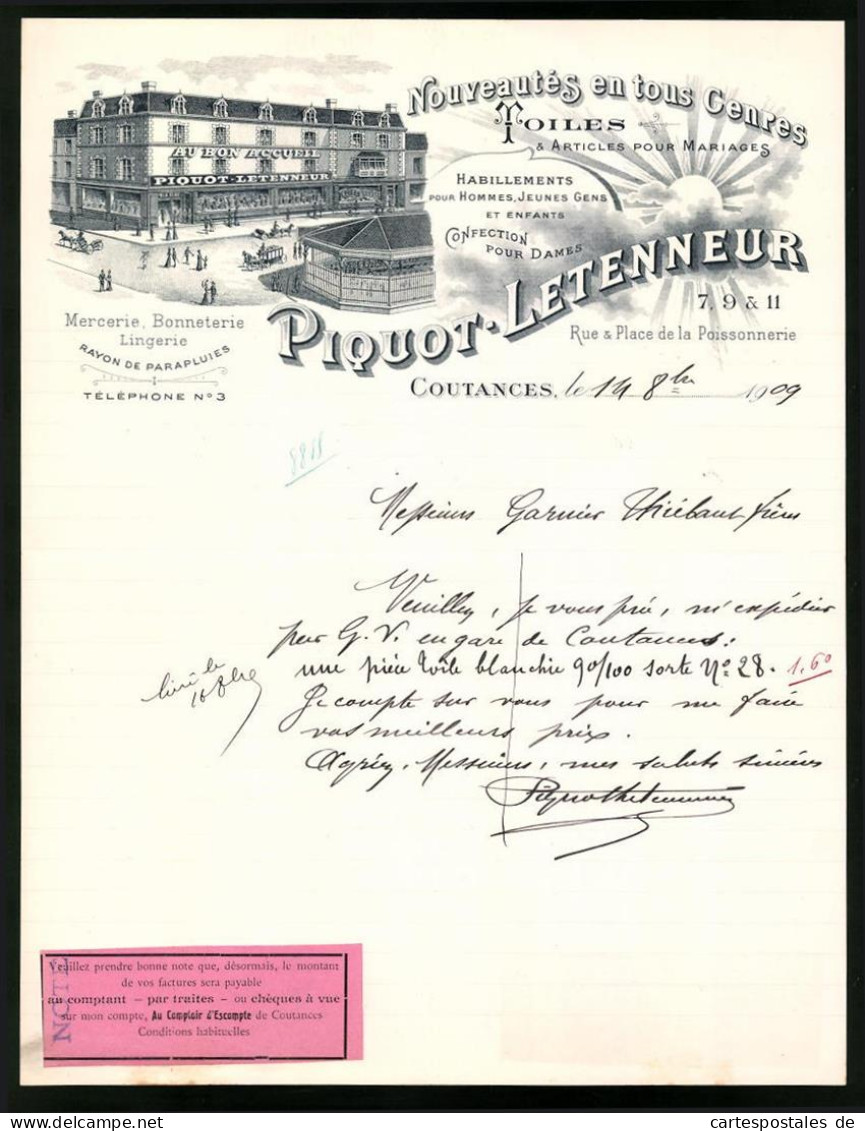 Nouveautés en tous Genres
Toiles
& Articles pour Mariages
Habillements
pour Hommes, Jeunes Gens
et Enfants
Confection
pour Dames
AU BON ACCUEIL
PIQUOT-LETENNEUR
Piquot-Letenneur
7, 9 & 11
Rue & Place de la Poissonnerie
Mercerie, Bonneterie
Lingerie
Rayon de Parapluies
Téléphone No 3
Coutances, le 14 8bre 1909
8818
Messieurs Garnier Thiébaut frères
Veuillez, je vous prie, m'expédier
par G. V. en gare de Coutances:
une pièce toile blanchie 90/100 sorte No 28. 1,60
livré le
16 8bre
Je compte sur vous pour me faire
vos meilleurs prix.
Agréez, Messieurs, mes saluts sincères
PiquotLetenneur
NOTE
Veuillez prendre bonne note que, désormais, le montant
de vos factures sera payable
au comptant — par traites — ou chèques à vue
sur mon compte, Au Comptoir d'Escompte de Coutances
Conditions habituelles
www.cartespostales.de